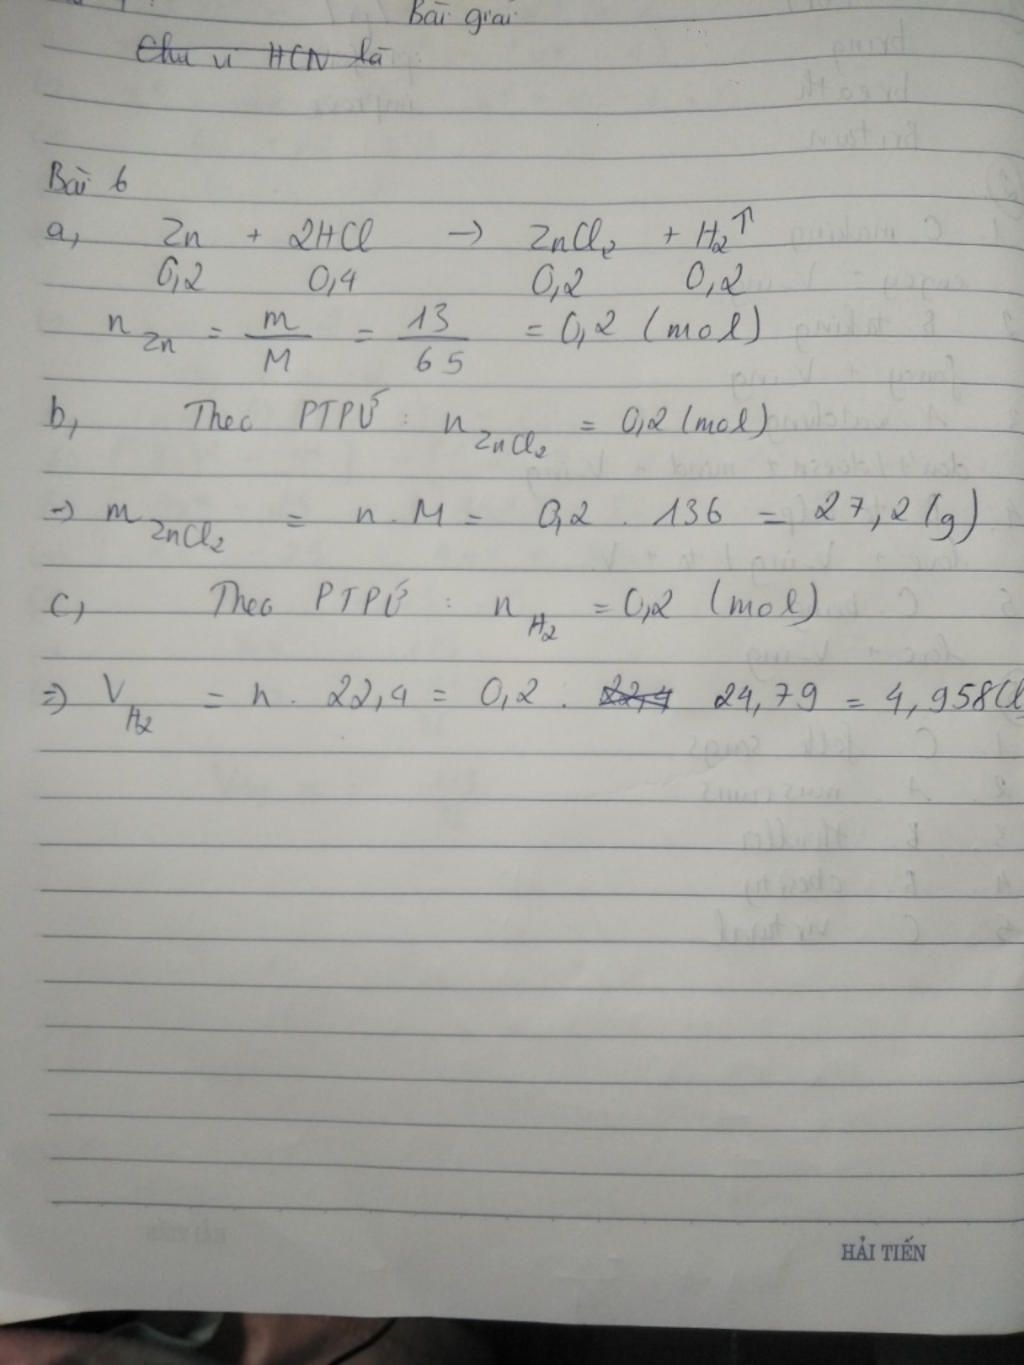 Bài giải
Chu vi HCN là
Bài 6
a, Zn + 2HCl → ZnCl₂ + H₂↑
0,2 0,4 0,2 0,2
n Zn = m/M = 13/65 = 0,2 (mol)
b, Theo PTPỨ : n ZnCl₂ = 0,2 (mol)
→ m ZnCl₂ = n . M = 0,2 . 136 = 27,2 (g)
c, Theo PTPỨ : n H₂ = 0,2 (mol)
=> V H₂ = n . 22,4 = 0,2 . 22,4 24,79 = 4,958(l
HẢI TIẾN